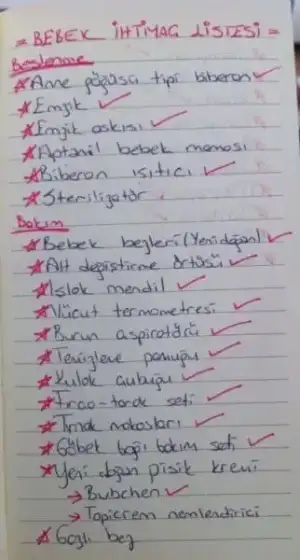 = BEBEK İHTİMAG LİSTESİ =
Beslenme
* Anne göğüsü tipi biberon ✓
* Emzik ✓
* Emzik askısı ✓
* Aptamil bebek maması
* Biberon ısıtıcı ✓
* Sterilizatör
Bakım
* Bebek bezleri (Yenidoğan) ✓
* Alt değiştirme örtüsü ✓
* Islak mendil ✓
* Vücut termometresi ✓
* Burun aspiratörü ✓
* Temizleme pamuğu ✓
* Kulak çubuğu ✓
* Fırça-tarak seti ✓
* Tırnak makasları ✓
* Göbek bağı bakım seti ✓
* Yeni doğan pişik kremi
→ Bubchen ✓
→ Topicrem nemlendirici
* Gazlı bez